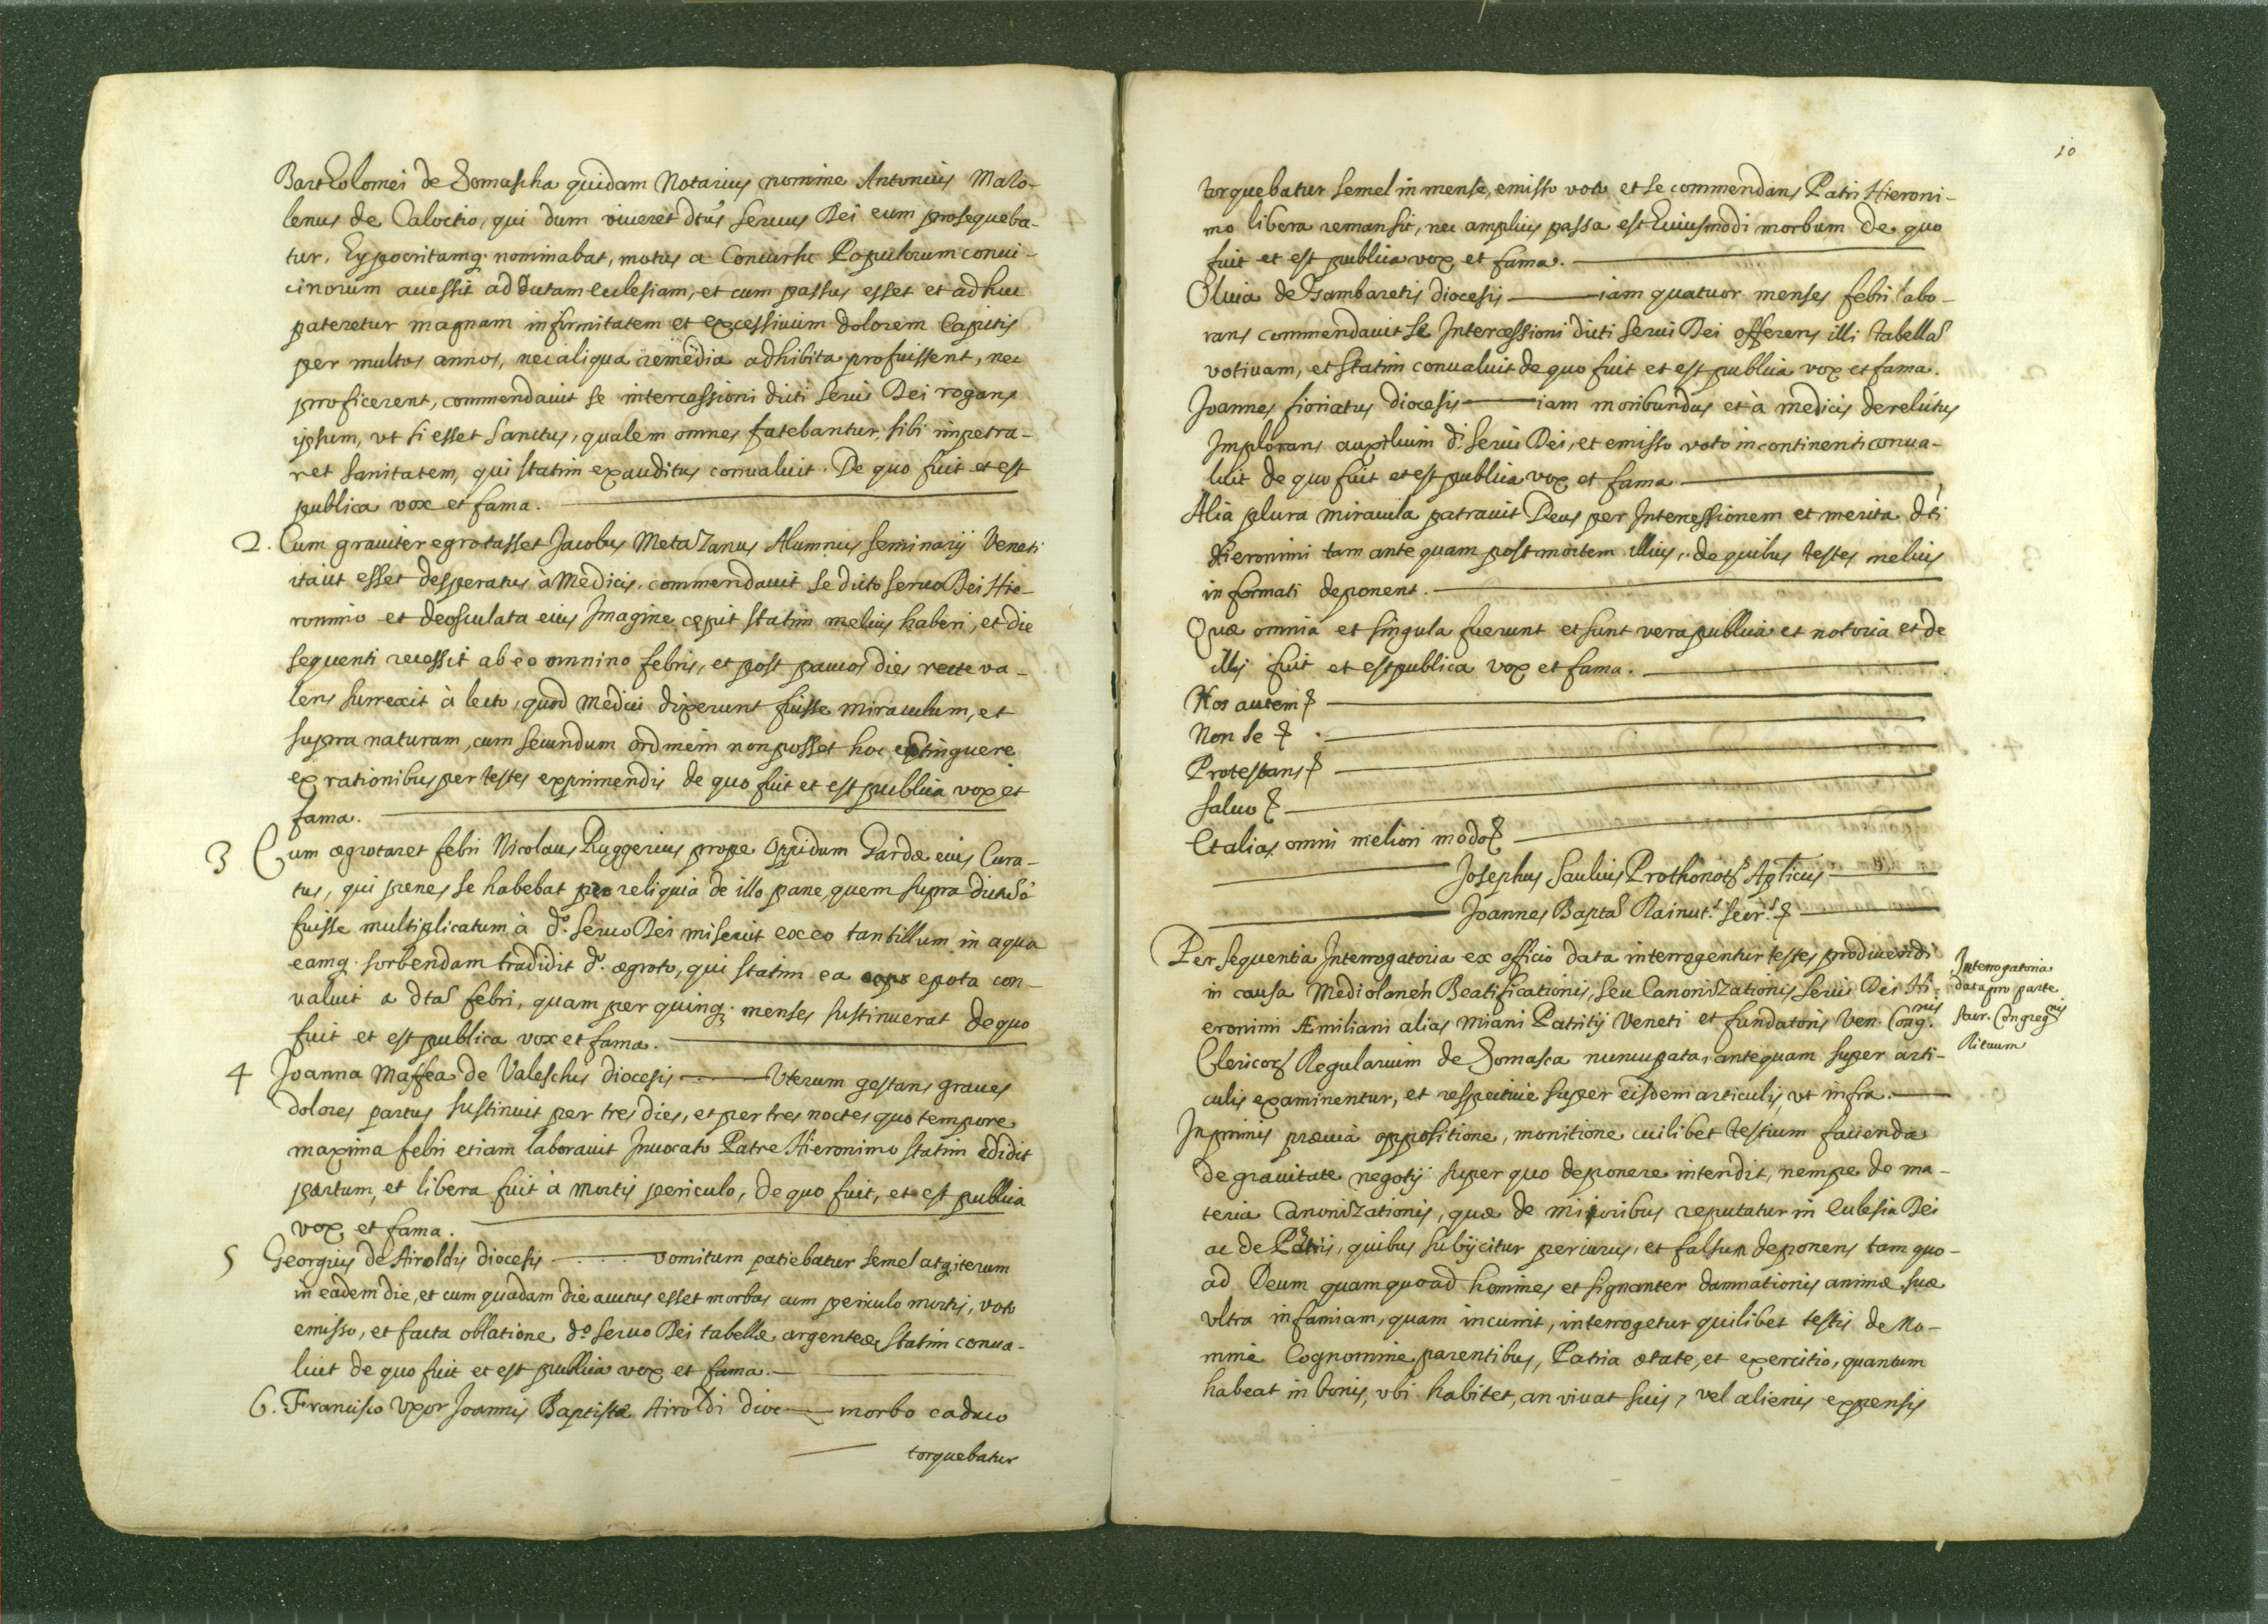 Bartholomei de Somascha quidam Notarius nomine Antonius Malo-
lenus de Caloctio, qui dum viueret dtus seruus Dei eum prosequeba-
tur, Hypocritamq. nominabat, motus a Concursu Populorum conui-
cinorum accessit ad dictam ecclesiam, et cum passus esset et adhuc
pateretur magnam infirmitatem et excessiuum dolorem Capitis
per multos annos, nec aliqua remedia adhibita profuissent, nec
proficerent, commendauit se intercessioni dicti serui Dei rogans
ipsum, ut si esset Sanctus, qualem omnes fatebantur, sibi impetra-
ret sanitatem, qui statim exauditus conualuit. De quo fuit et est
publica vox et fama.
2. Cum grauiter egrotasset Jacobus Metazanus Alumnus seminarij Veneti
ita ut esset desperatus à Medicis, commendauit se dicto seruo Dei Hie-
ronimo et deosculata eius Imagine cepit statim melius haberi, et die
sequenti recessit ab eo omnino febris, et post paucos dies recte va-
lens surrexit à lecto, quod Medici dixerunt fuisse miraculum, et
supra naturam, cum secundum ordinem non posset hoc extinguere
ex rationibus per testes exprimendis de quo fuit et est publica vox et
fama.
3 Cum ægrotaret febri Nicolaus Ruggerius prope Oppidum Gardæ eius Cura-
tus, qui penes se habebat pro reliquia de illo pane, quem supra
fuisse multiplicatum à do. seruo Dei miscuit ex eo tantillum in aqua
eamq. sorbendam tradidit do. ægroto, qui statim ea epota con-
valuit a dta febri, quam per quinq. menses sustinuerat de quo
fuit et est publica vox et fama.
4 Joanna Maffea de Valeschis diocesis Vterum gestans graues
dolores partus sustinuit per tres dies, et per tres noctes quo tempore
maxima febri etiam laborauit Inuocato Patre Hieronimo statim edidit
partum, et libera fuit à mortis periculo, de quo fuit, et est publica
vox et fama.
5 Georgius de Airoldis diocesis vomitum patiebatur semel atq iterum
in eadem die, et cum quadam die auctus esset morbus cum periculo mortis, voto
emisso, et facta oblatione do seruo Dei tabellæ argenteæ statim conua-
luit de quo fuit et est publica vox et fama.
6. Francisca Vxor Joannis Baptistæ Airoldi dioc morbo caduco
torquebatur
10
torquebatur semel in mense, emisso voto et se commendans Patri Hieroni-
mo libera remansit, nec amplius passa est huiusmodi morbum de quo
fuit et est publica vox et fama.
Oliuia de Gambaretis diocesis iam quatuor menses febri labo-
rans commendauit se Intercessioni dicti serui Dei offerens illi tabella
votiuam, et statim conualuit de quo fuit et est publica vox et fama.
Joannes fioriatus diocesis iam moribundus et à medicis derelictus
Implorans auxilium di. serui Dei, et emisso voto incontinenti conua-
luit de quo fuit et est publica vox et fama
Alia plura miracula patrauit Deus per Intercessionem et merita dti
Hieronimi tam ante quam post mortem illius, de quibus testes melius
informati deponent.
Quæ omnia et singula fuerunt et sunt vera publica et notoria et de
illis fuit et est publica vox et fama.
Hos autem
Non se
Protestans
Saluo
Et alias omni meliori modo
Josephus Saulius Prothonots Aplicus
Joannes Bapta Rainut.s Secr.s
Per sequentia Interrogatoria ex officio data interrogentur testes producendi
in causa Mediolanen Beatificationis, seu Canonizationis serui Dei Hi-
eronimi Æmiliani alias Miani Patritij Veneti et fundatoris Ven. Cong.nis
Clericor Regularium de Somasca nuncupata, antequam super arti-
culis examinentur, et respectiue super eisdem articulis, ut infra.
Interrogatoria
data pro parte
Sacr. Congreg.nis
Rituum
Inprimis præuia oppositione, monitione cuilibet testium facienda
de grauitate negotij super quo deponere intendit, nempe de ma-
teria Canonizationis, quæ de maioribus reputatur in ecclesia Dei
ac de quibus subijcitur periurus, et falsum deponens tam quo-
ad Deum quam quoad homines et signanter damnationis animæ suæ
vltra infamiam, quam incurrit, interrogetur quilibet testis de No-
mine Cognomine, parentibus, Patria ætate, et exercitio, quantum
habeat in bonis, vbi habitet, an viuat suis, vel alienis expensis